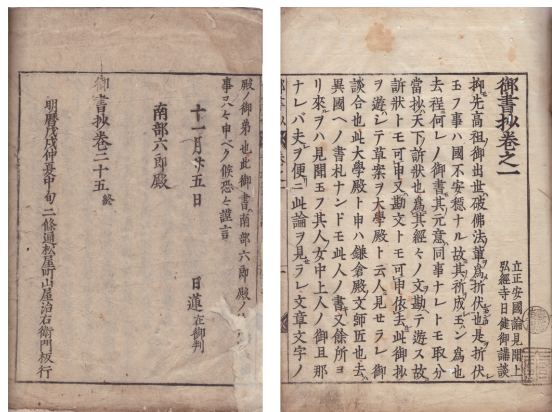 御書抄卷之一
立正安國論見聞上
弘經寺日健御講談
抑先高祖御出世破佛法輩爲折伏也是ヲ折伏
玉フ事ハ國不安穩ナル故其祈成玉ハン爲也
去程何レノ御書其元意同事ナレトモ取分
當抄天下ノ訴狀也爲其經々ノ文勘テ遊ス故
訴狀トモ可申又勘文トモ可申依去此御抄
ヲ遊シテ草案ヲ大學殿ト云人見セラレ御
談合也此大學殿ト申ハ鎌倉殿文師匠也去
異國ヘノ書札ナンドモ此人ノ書又余所ヨ
リ來ヲハ見聞玉フ其人女中上人ノ御且那
ナレバ夫ヲ便ニ此論ヲ見ラレ文章文字ノ
殿ノ御弟也此御書南部六郎殿ノ
事只今申ベク候恐々謹言
十一月廿五日
日蓮在御判
南部六郎殿
御書抄卷二十五終
明曆戊戌仲夏中旬二條通松屋町山屋治右衛門板行